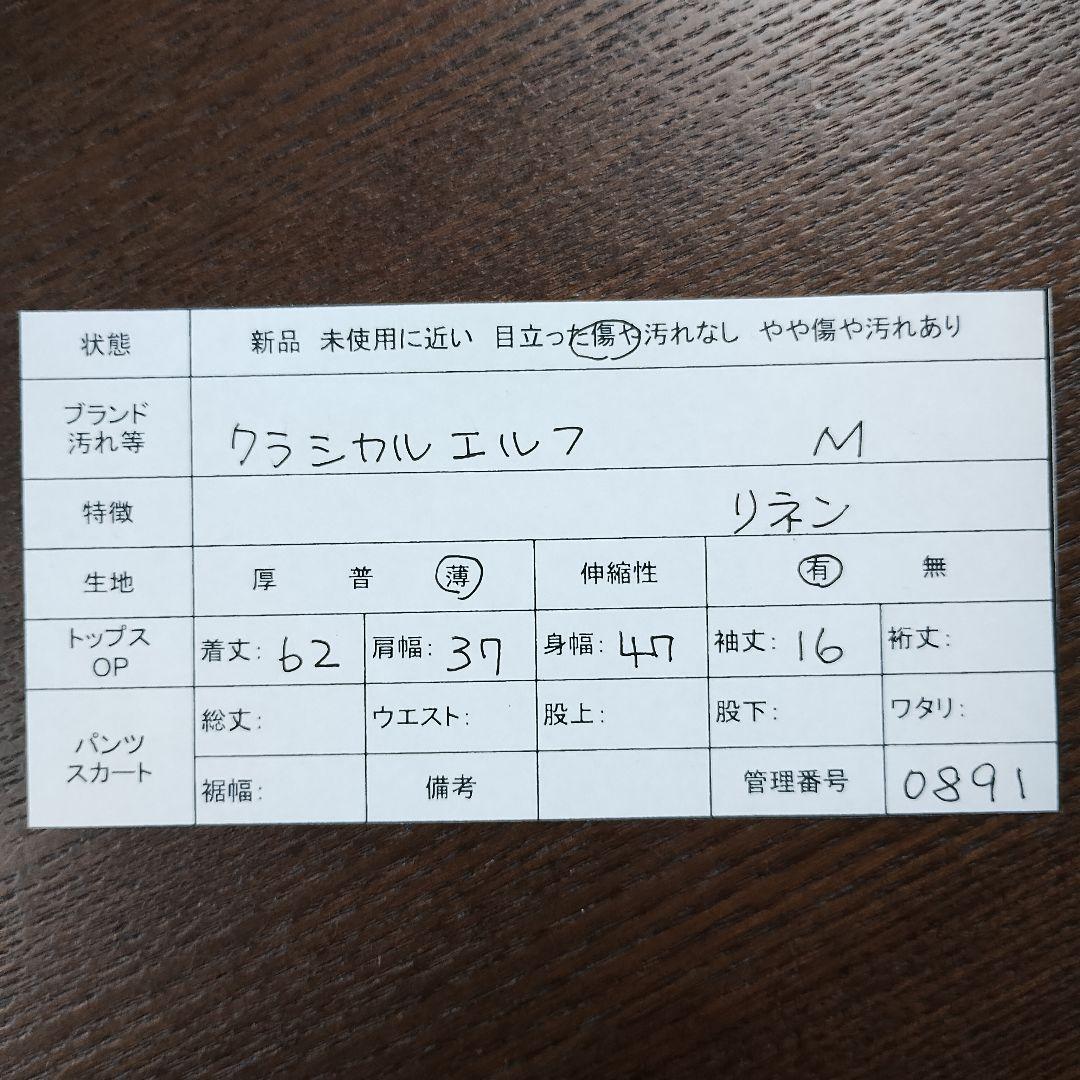 状態 新品 未使用に近い 目立った傷や汚れなし やや傷や汚れあり
ブランド
汚れ等 クラシカルエルフ M
特徴 リネン
生地 厚 普 薄 伸縮性 有 無
トップス
OP 着丈: 62 肩幅: 37 身幅: 47 袖丈: 16 裄丈:
パンツ
スカート 総丈: ウエスト: 股上: 股下: ワタリ:
裾幅: 備考 管理番号 0891